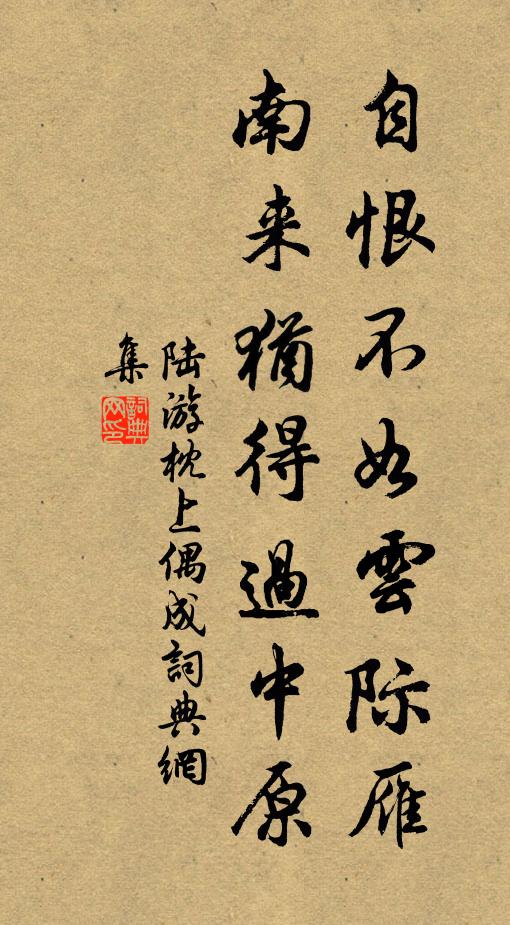 自恨不如雲际雁
南来猶得過中原
陆游枕上偶成詞典網
集
詞典
网印